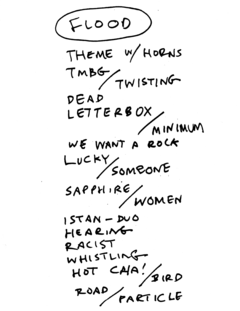 FLOOD
THEME W/ HORNS
TMBG/
TWISTING
DEAD
LETTERBOX/
MINIMUM
WE WANT A ROCK
LUCKY/
SOMEONE
SAPPHIRE/
WOMEN
ISTAN-DUO
HEARING
RACIST
WHISTLING
HOT CHA!/
BIRD
ROAD/
PARTICLE